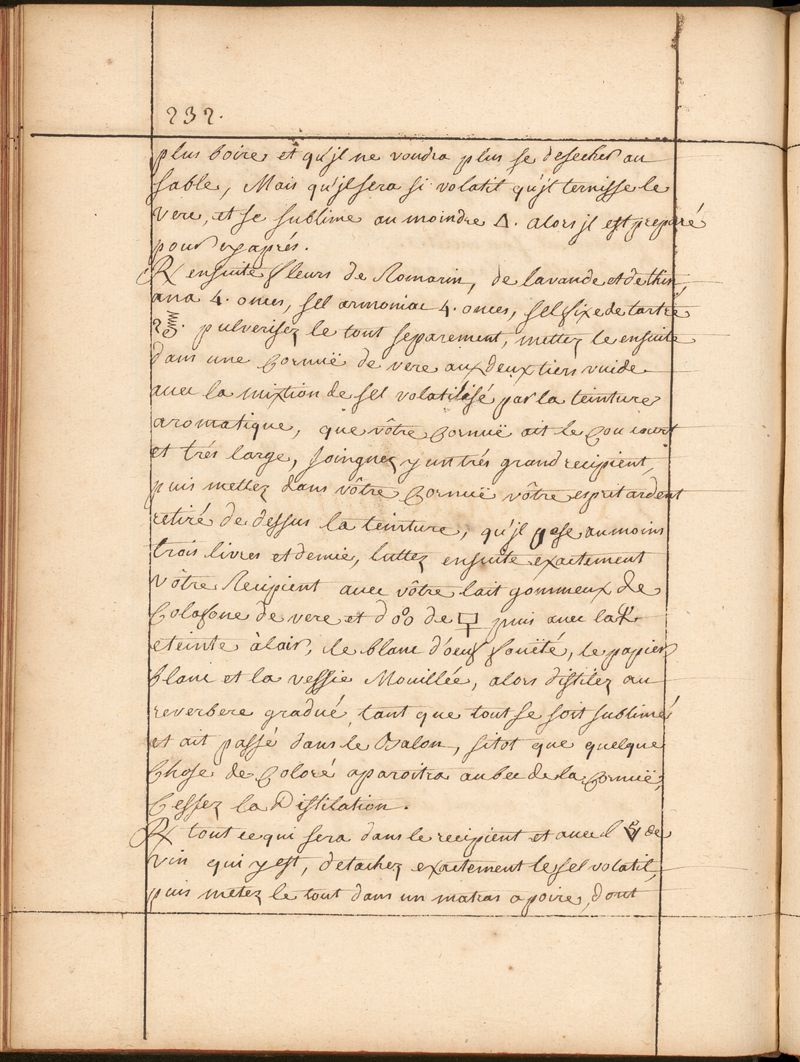 232.
plus boire et qu'jl ne voudra plus se desecher au
sable, Mais qu'jl sera si volatil qu'jl ternisse le
vere, et se sublime au moindre △. alors jl est preparé
pour cy aprés.
℞ ensuite fleurs de Romarin, de lavande et de thin,
ana 4. onces, sel armoniac 4. onces, sel fixe de tartre
pulverisez le tout separement, mettez le ensuite
dans une Cornuë de vere aux deux tiers vuide
avec la mixtion de sel volatilisé par la teinture
aromatique, que vôtre Cornuë ait le Cou court
et trés large, Joingnez y un trés grand recipient,
puis mettez dans vôtre Cornuë vôtre esprit ardent
retiré de dessus la teinture, qu'jl pese au moins
trois livres et demie, luttez ensuite exactement
vôtre Recipient avec vôtre lait gommeux de
Colofone de vere et d de puis avec la
eteinte à lair, le blanc d'oeuf foüété, le papier
blanc et la vessie Mouillée, alors distilez au
reverbere gradué, tant que tout se soit sublimé
et ait passé dans le Balon, sitot que quelque
Chose de Coloré aparoitra au bec de la Cornuë,
Cessez la Distilation.
℞ tout ce qui sera dans le recipient et avec l de
vin qui y est, detachez exactement le sel volatil,
puis metez le tout dans un matras a poire, dont